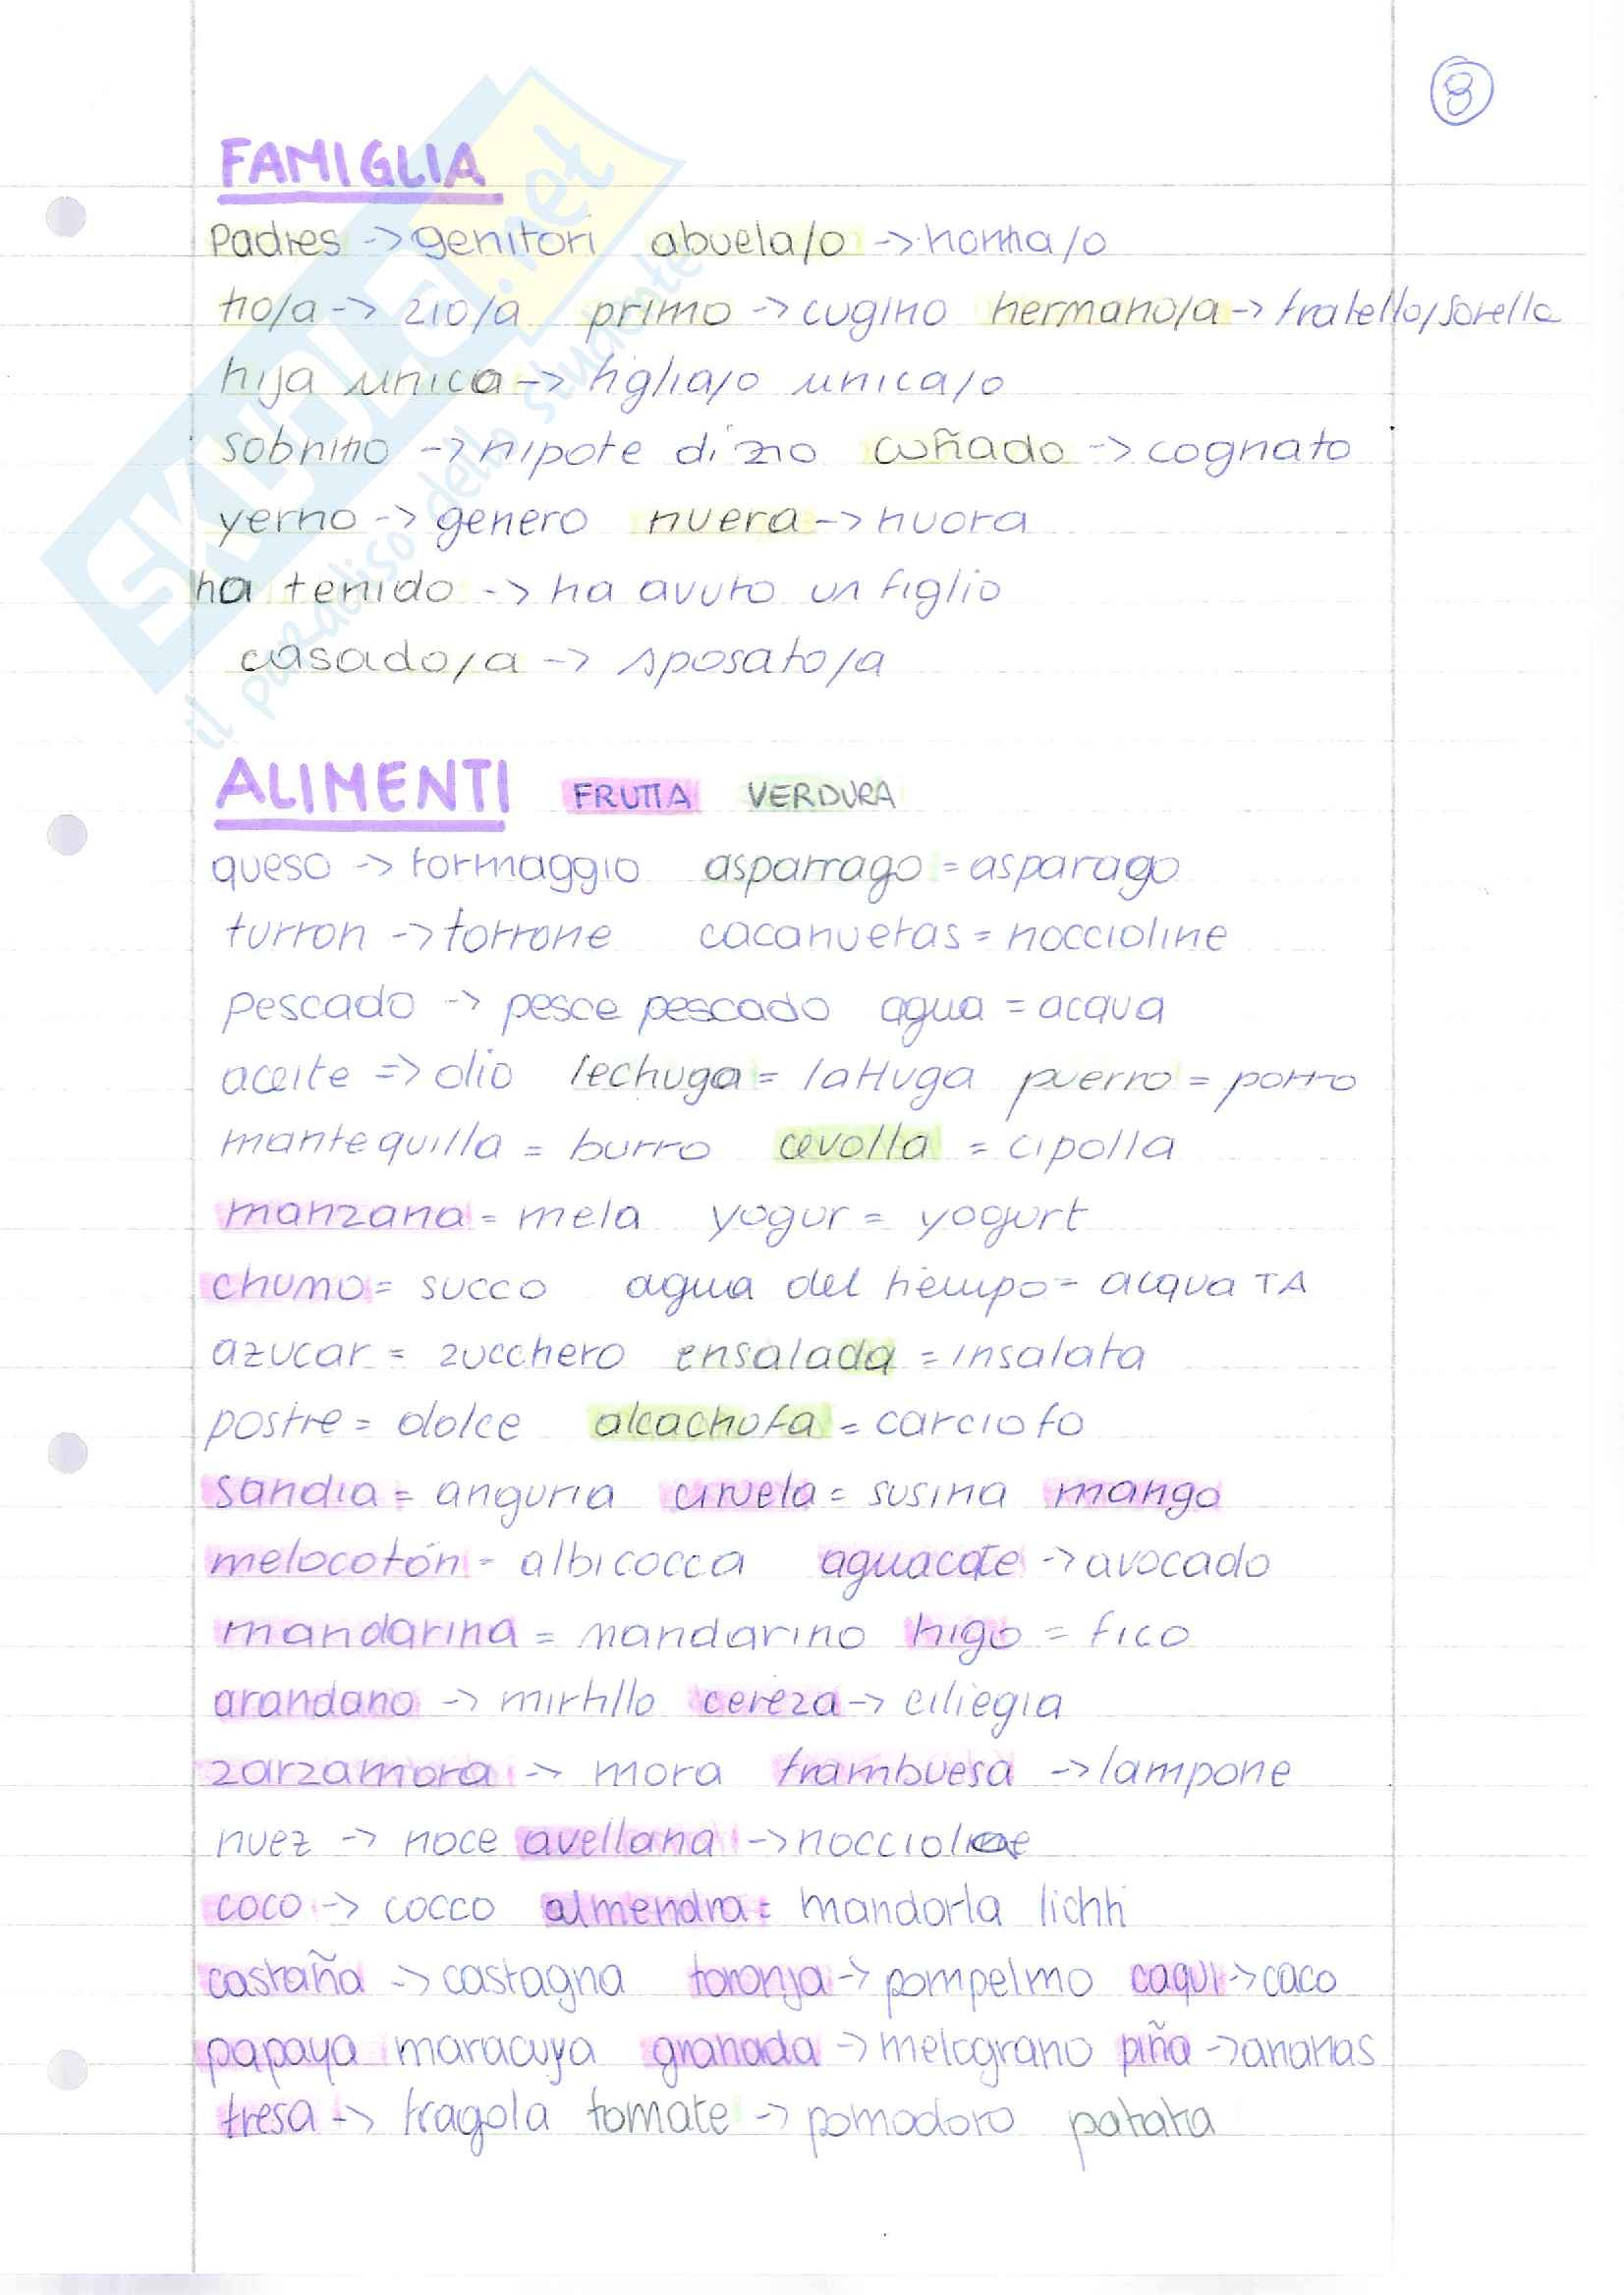 8
FAMIGLIA
Padres -> genitori abuela/o -> nonna/o
tio/a -> zio/a primo -> cugino hermano/a -> fratello/sorella
hija unica -> figlia/o unica/o
sobrino -> nipote di zio cuñado -> cognato
yerno -> genero nuera -> nuora
ha tenido -> ha avuto un figlio
casado/a -> sposato/a
ALIMENTI FRUTTA VERDURA
queso -> formaggio asparrago = asparago
turron -> torrone cacanuetas = noccioline
pescado -> pesce pescado agua = acqua
aceite => olio lechuga = lattuga puerro = porro
mantequilla = burro cevolla = cipolla
manzana = mela yogur = yogurt
chumo = succo agua del tiempo = acqua TA
azucar = zucchero ensalada = insalata
postre = dolce alcachofa = carciofo
sandia = anguria ciruela = susina mango
melocotón = albicocca aguacate -> avocado
mandarina = mandarino higo = fico
arandano -> mirtillo cereza -> ciliegia
zarzamora -> mora frambuesa -> lampone
nuez -> noce avellana -> noccioline
coco -> cocco almendra = mandorla lichti
castaña -> castagna toronja -> pompelmo caqui -> caco
papaya maracuya granada -> melograno piña -> ananas
fresa -> fragola tomate -> pomodoro patata
SKUOLA.net
il paradiso dello studente